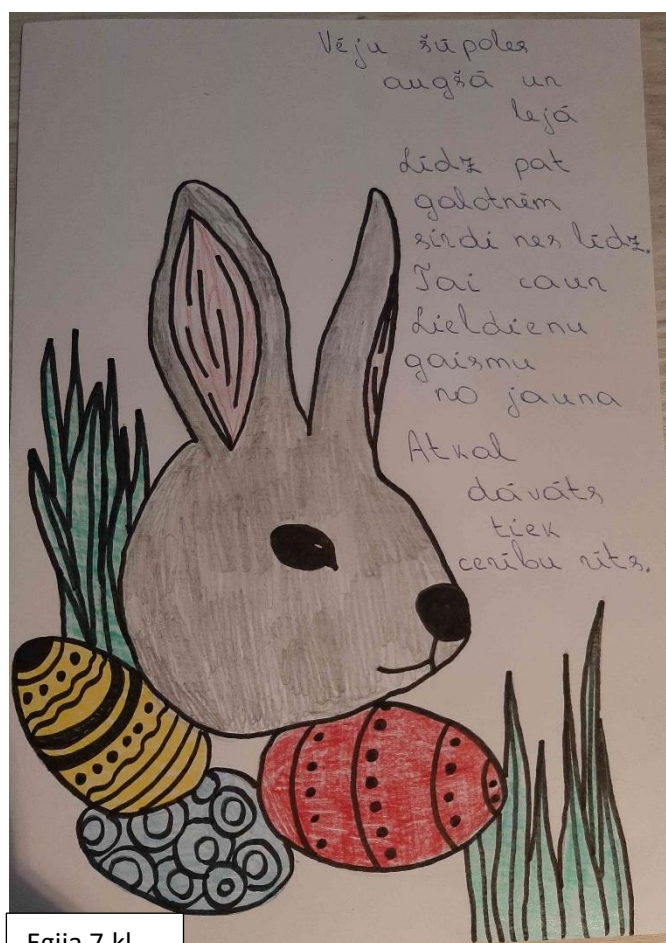 Vēju šūpoles
augšā un
lejā
Līdz pat
galotnēm
sirdi nes līdz.
Tai caur
Lieldienu
gaismu
no jauna
Atkal
dāvāts
tiek
cerību rīts.
Egija 7.kl.